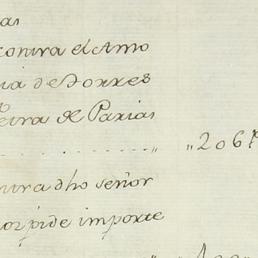 as
contra el Amo
ia de Torres
teira de Parias
„ 2067
ntra dho señor
por pide importe